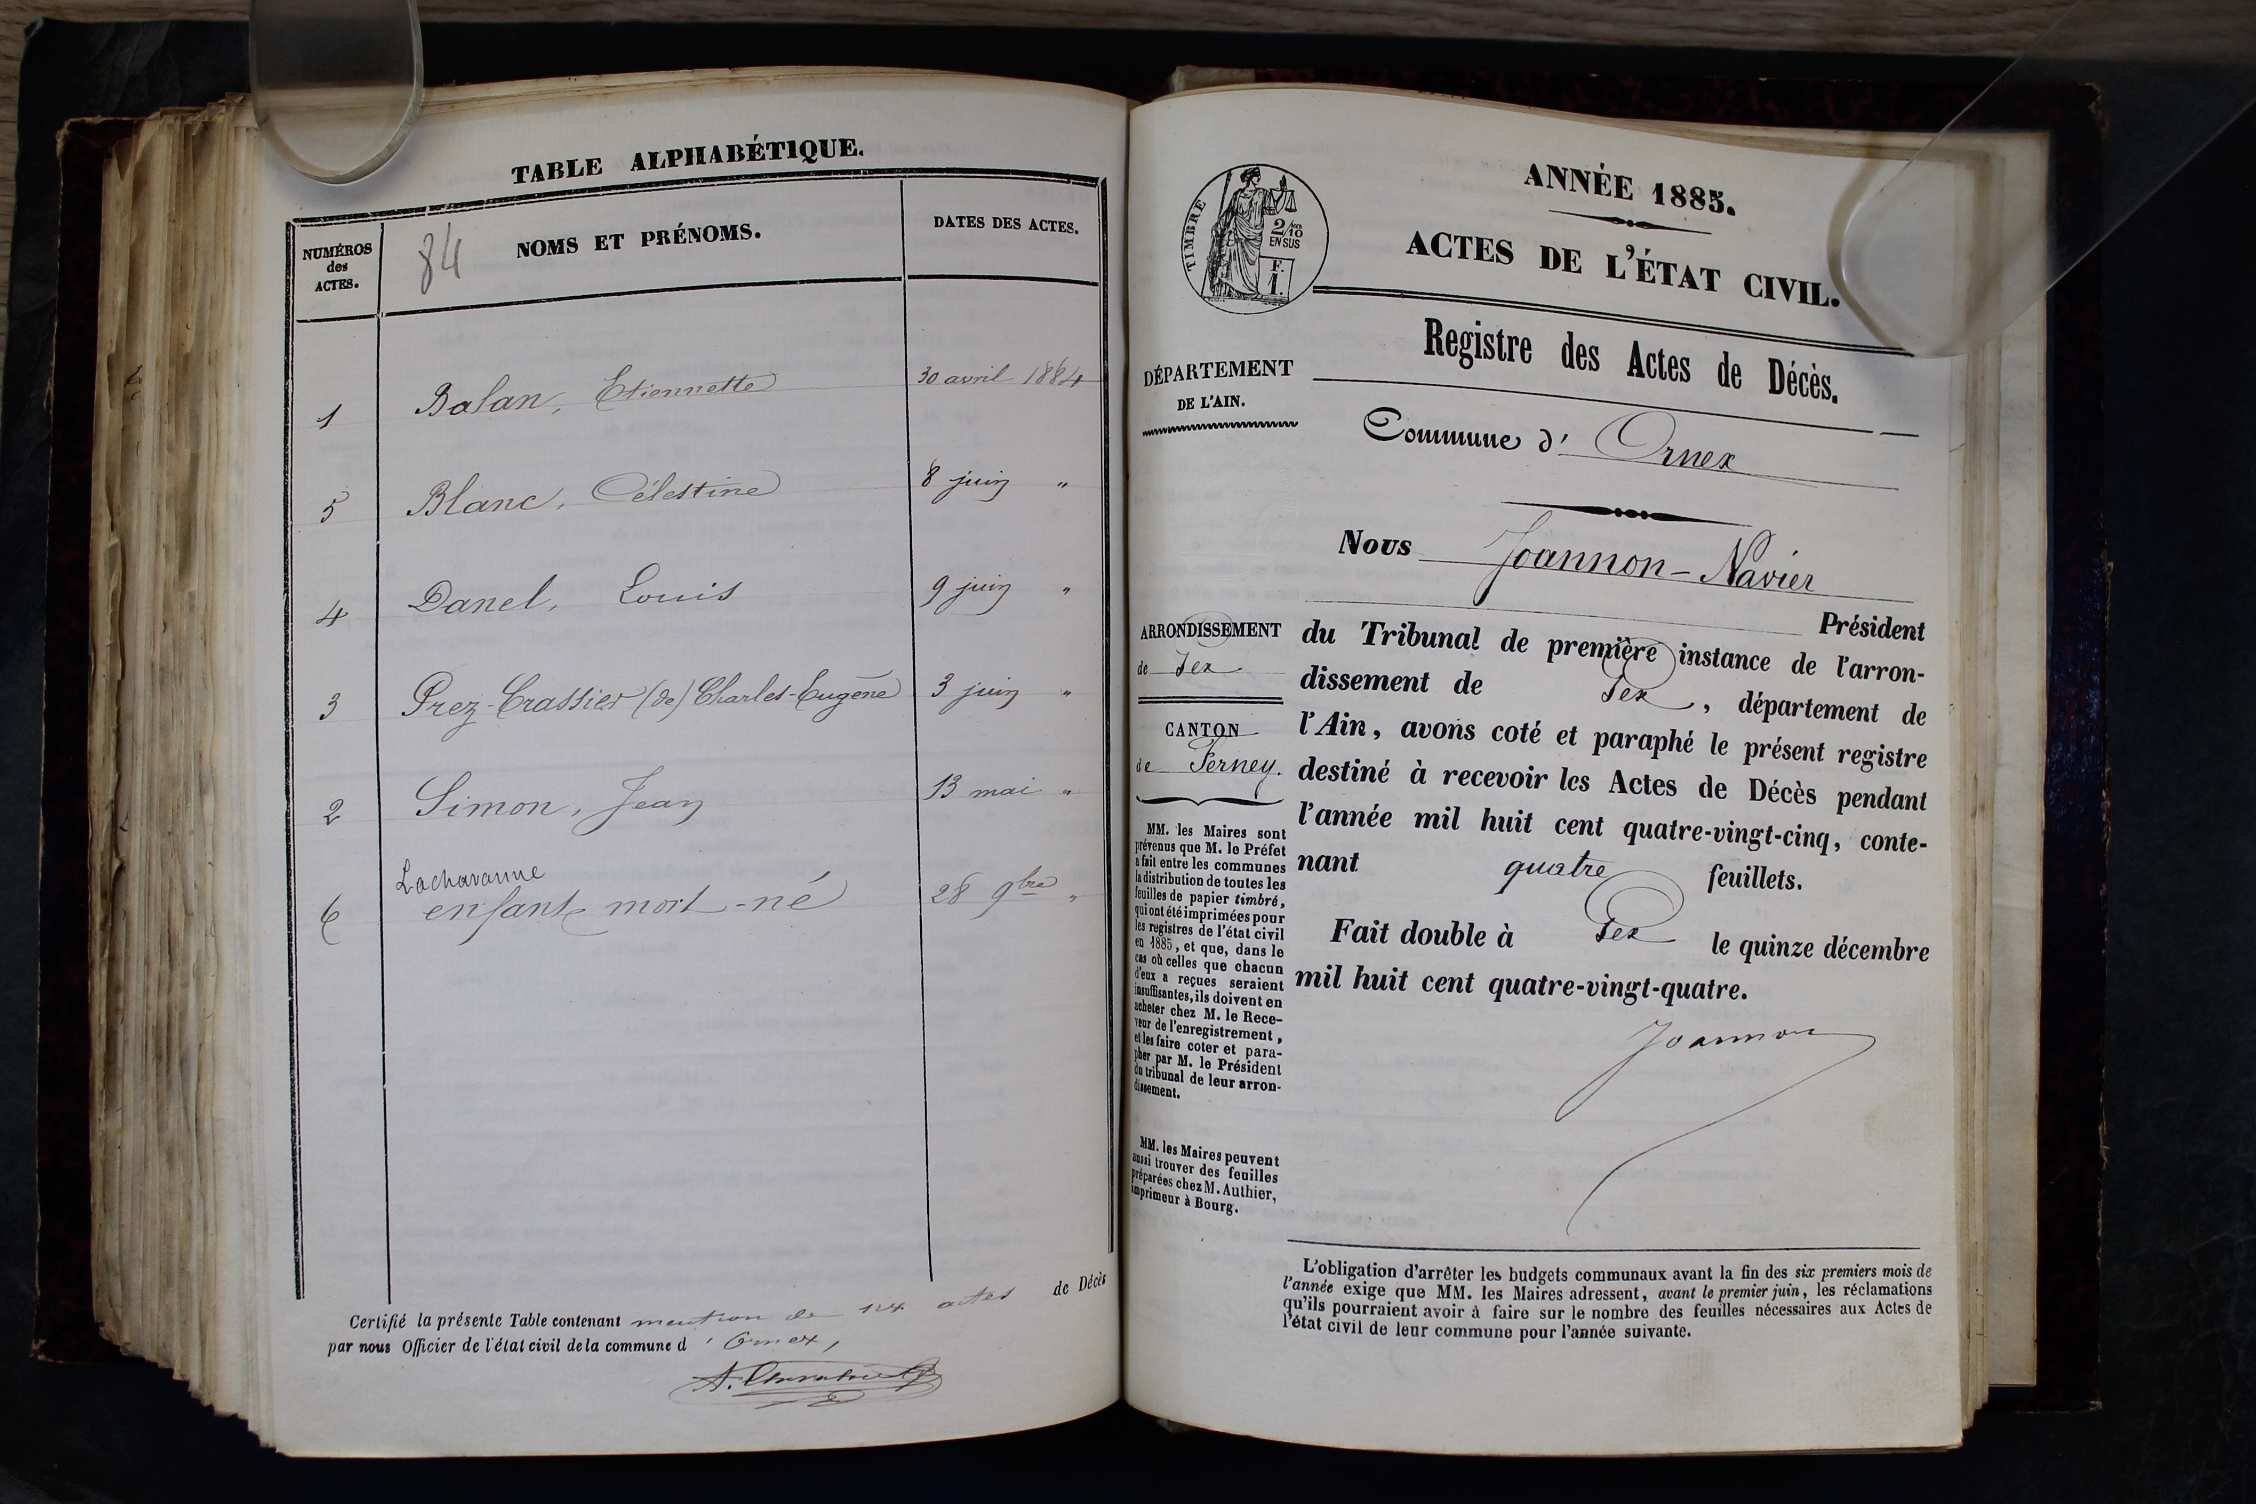 TABLE ALPHABÉTIQUE.
NUMÉROS
des
ACTES.
84
NOMS ET PRÉNOMS.
DATES DES ACTES.
1 Balan, Etiennette 30 avril 1884
5 Blanc, Célestine 8 juin "
4 Danel, Louis 9 juin "
3 Prez-Crassier (de) Charles-Eugène 3 juin "
2 Simon, Jean 13 mai "
Lacharanne
6 enfant mort-né 28 9bre "
Certifié la présente Table contenant mention de actes de Décès
par nous Officier de l'état civil de la commune d'Ornex,
ANNÉE 1885.
ACTES DE L'ÉTAT CIVIL.
TIMBRE
2/10
EN SUS
F.
1.
Registre des Actes de Décès.
DÉPARTEMENT
DE L'AIN.
Commune d'Ornex
Nous Joannon-Navier
Président
ARRONDISSEMENT
de Gex
CANTON
de Ferney.
du Tribunal de première instance de l'arron-
dissement de Gex, département de
l'Ain, avons coté et paraphé le présent registre
destiné à recevoir les Actes de Décès pendant
l'année mil huit cent quatre-vingt-cinq, conte-
nant quatre feuillets.
Fait double à Gex le quinze décembre
mil huit cent quatre-vingt-quatre.
Joannon
MM. les Maires sont
prévenus que M. le Préfet
a fait entre les communes
la distribution de toutes les
feuilles de papier timbré,
qui ont été imprimées pour
les registres de l'état civil
en 1885, et que, dans le
cas où celles que chacun
d'eux a reçues seraient
insuffisantes, ils doivent en
acheter chez M. le Rece-
veur de l'enregistrement,
et les faire coter et para-
pher par M. le Président
du tribunal de leur arron-
dissement.
MM. les Maires peuvent
aussi trouver des feuilles
préparées chez M. Authier,
imprimeur à Bourg.
L'obligation d'arrêter les budgets communaux avant la fin des six premiers mois de
l'année exige que MM. les Maires adressent, avant le premier juin, les réclamations
qu'ils pourraient avoir à faire sur le nombre des feuilles nécessaires aux Actes de
l'état civil de leur commune pour l'année suivante.